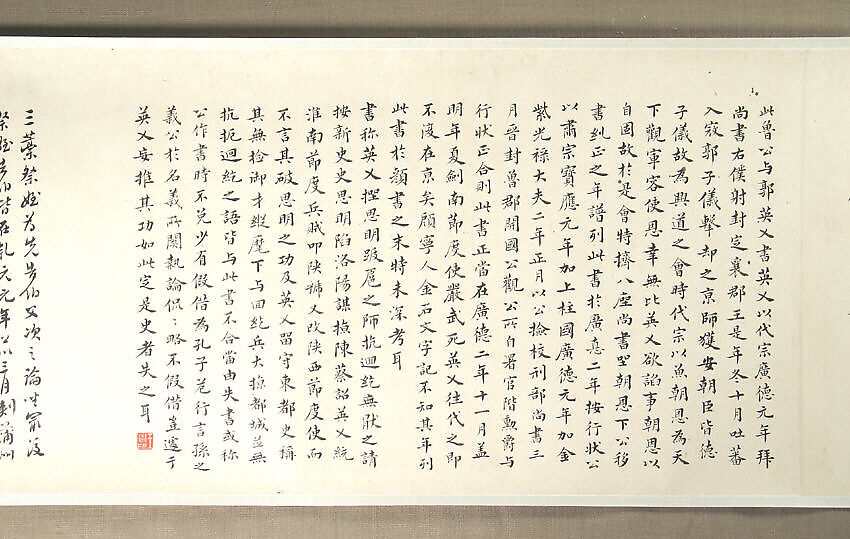 此魯公与郭英乂書英乂以代宗廣德元年拜
尚書右僕射封定襄郡王是年冬十月吐蕃
入寇郭子儀擊却之京師獲安朝臣皆德
子儀故為興道之會時代宗以魚朝恩為天
下觀軍容使恩幸無比英乂欲諂事朝恩以
自固故於是會特擠八座尚書坐朝恩下公移
書糾正之年譜列此書於廣德二年按行狀公
以肅宗寶應元年加上柱國廣德元年加金
紫光祿大夫二年正月以公檢校刑部尚書三
月晉封魯郡開國公觀公所自署官階勳爵与
行狀正合則此書正當在廣德二年十一月蓋
明年夏劍南節度使嚴武死英乂往代之即
不復在京矣顧寧人金石文字記不知其年列
此書於顏書之末特未深考耳
書稱英乂挫思明跋扈之師抗迴紇無猒之請
按新史史思明陷洛陽謀掠陳蔡詔英乂統
淮南節度兵賊叩陝補乂改陝西節度使而
不言其破思明之功及英乂留守東都史稱
其無檢御才縱麾下与回紇兵大掠都城並無
抗扼迴紇之語皆与此書不合當由失書或
公作書時不免少有假借為孔子危行言孫之
義公於名義所關執論侃侃略不假借豈於
英乂妄推其功如此定是史者失之耳
三葉祭姪為先告伯父次之論坐
祭姪告伯皆在乾元元年以三月刺蒲州